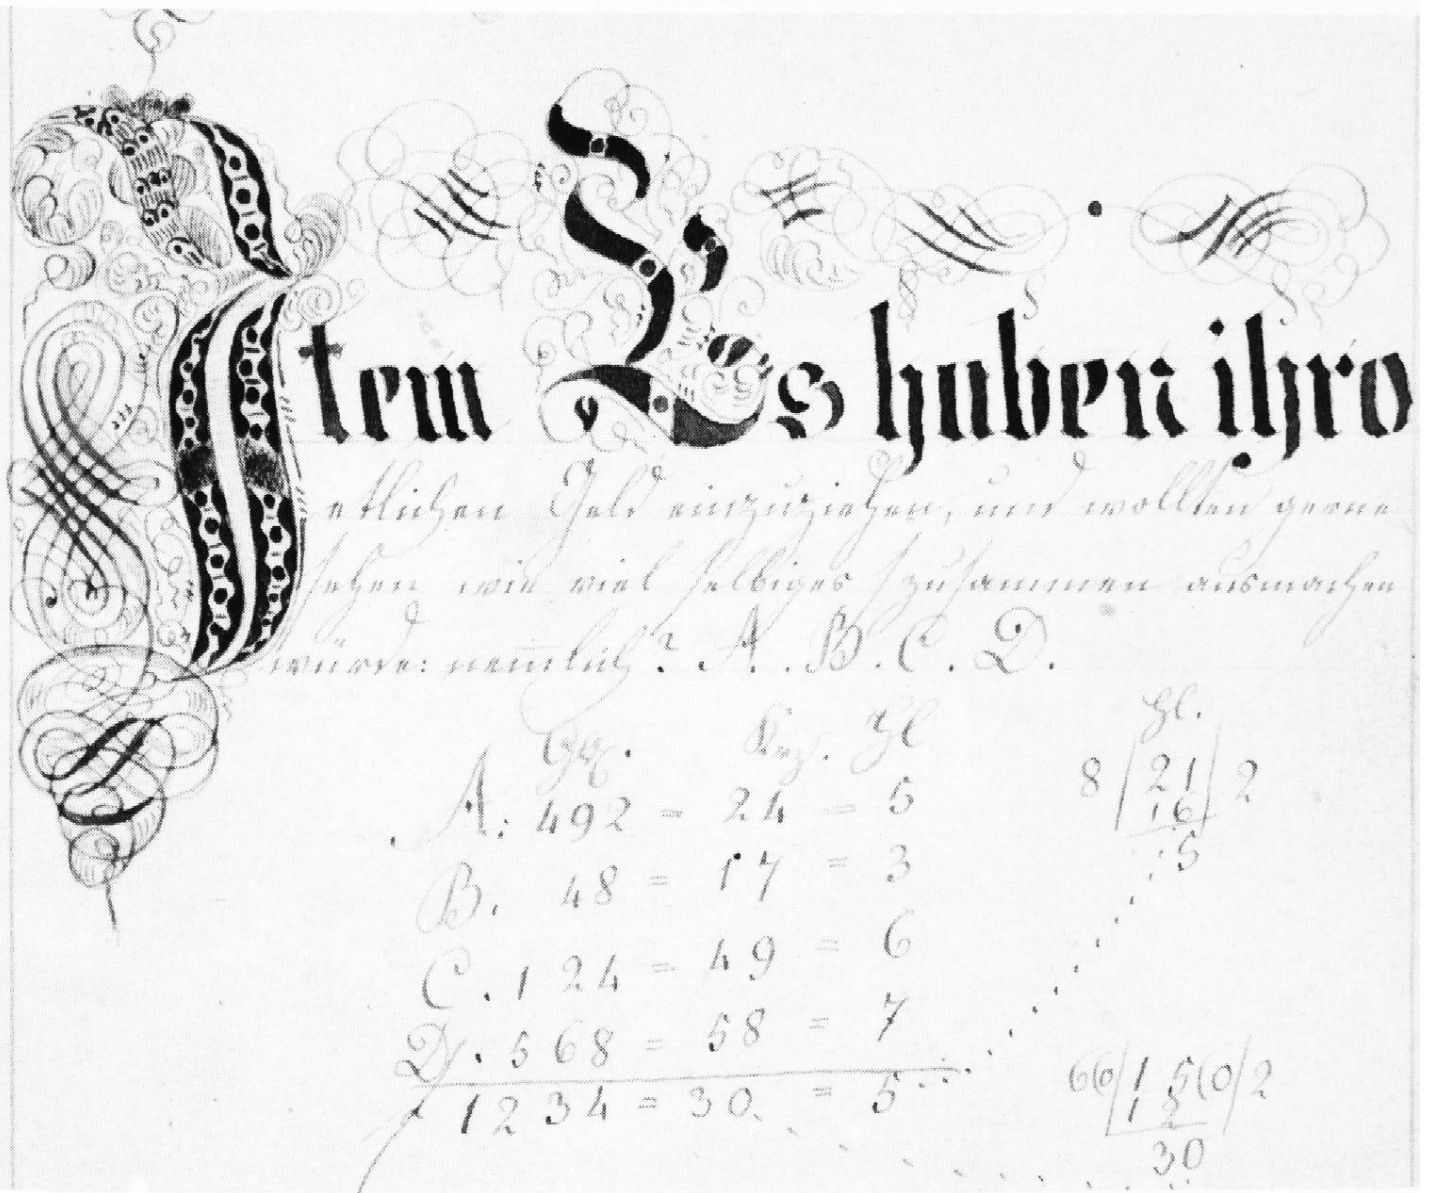 Item Es huben ihro
etlichen Geld einzuziehen, und wollten gerne
sehen wie viel selbiges zusammen ausmachen
würde: nem̅lich? A. B. C. D.
Krz. Hl Hl.
A: 492 = 24 = 5 8/21/2
16
B. 48 = 17 = 3 5
C. 124 = 49 = 6
D. 568 = 58 = 7
1234 = 30 = 5 6(0/15(0/2
12
30